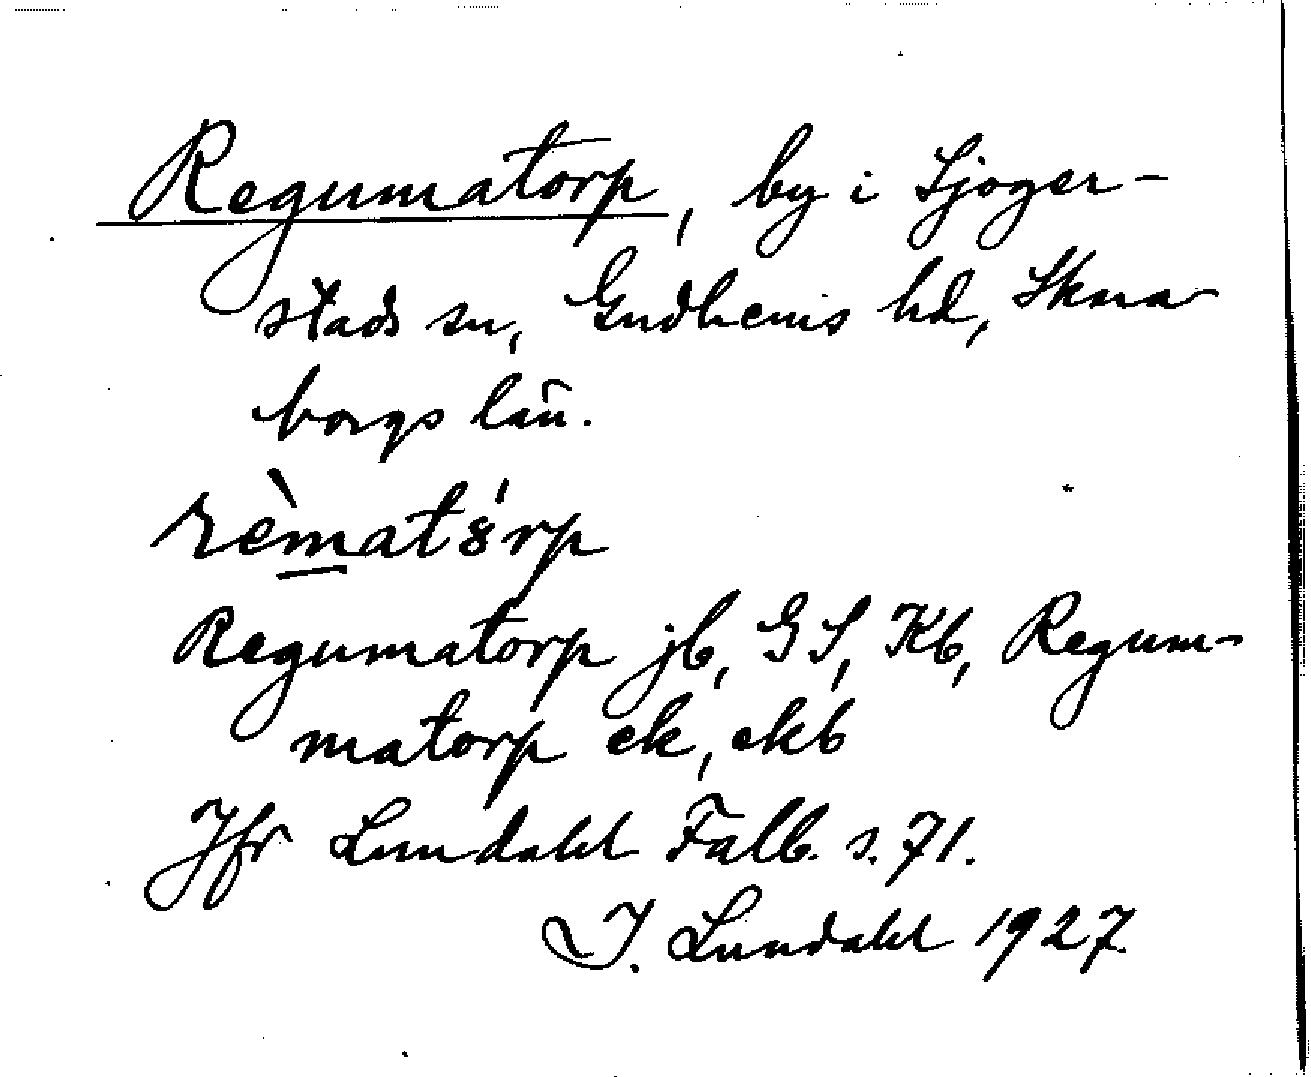 Regumatorp, by i Sjoger-
stads sn, Gudhems hd, Skara-
borgs län.
rèmatórp
Regumatorp jb, GS, Kb, Regum-
matorp ek, ekb
Jfr Lundahl Falb. s. 71.
I. Lundahl 1927.